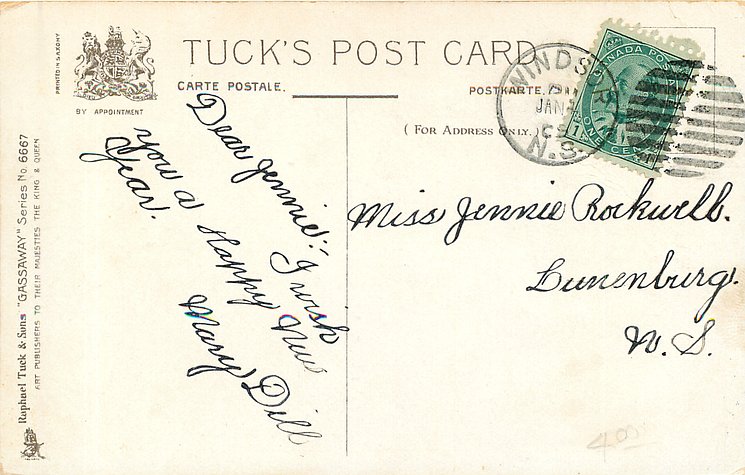 TUCK'S POST CARD
CARTE POSTALE.
POSTKARTE.
(For Address Only.)
PRINTED IN SAXONY
BY APPOINTMENT
Raphael Tuck & Sons "GASSAWAY" Series No. 6667
ART PUBLISHERS TO THEIR MAJESTIES THE KING & QUEEN
WINDSOR
JAN
N.S.
CANADA POSTAGE
ONE CENT
Dear Jennie:
I wish
you a Happy New
Year.
Mary Dill
Miss Jennie Rockwell.
Lunenburg.
N. S.
4.00